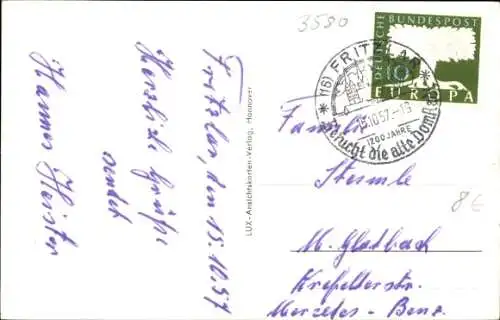 3580
Fritzlar, den 15.10.57
Herzliche Grüße
sendet
Hannes
LUX-Ansichtskarten-Verlag, Hannover
DEUTSCHE BUNDESPOST
EUROPA
(16) FRITZLAR
15.10.57.-18
1200 JAHRE
Besucht die alte Domstadt
Familie
M. Gladbach
Krefelderstr.
Merzedes-Benz.
8€